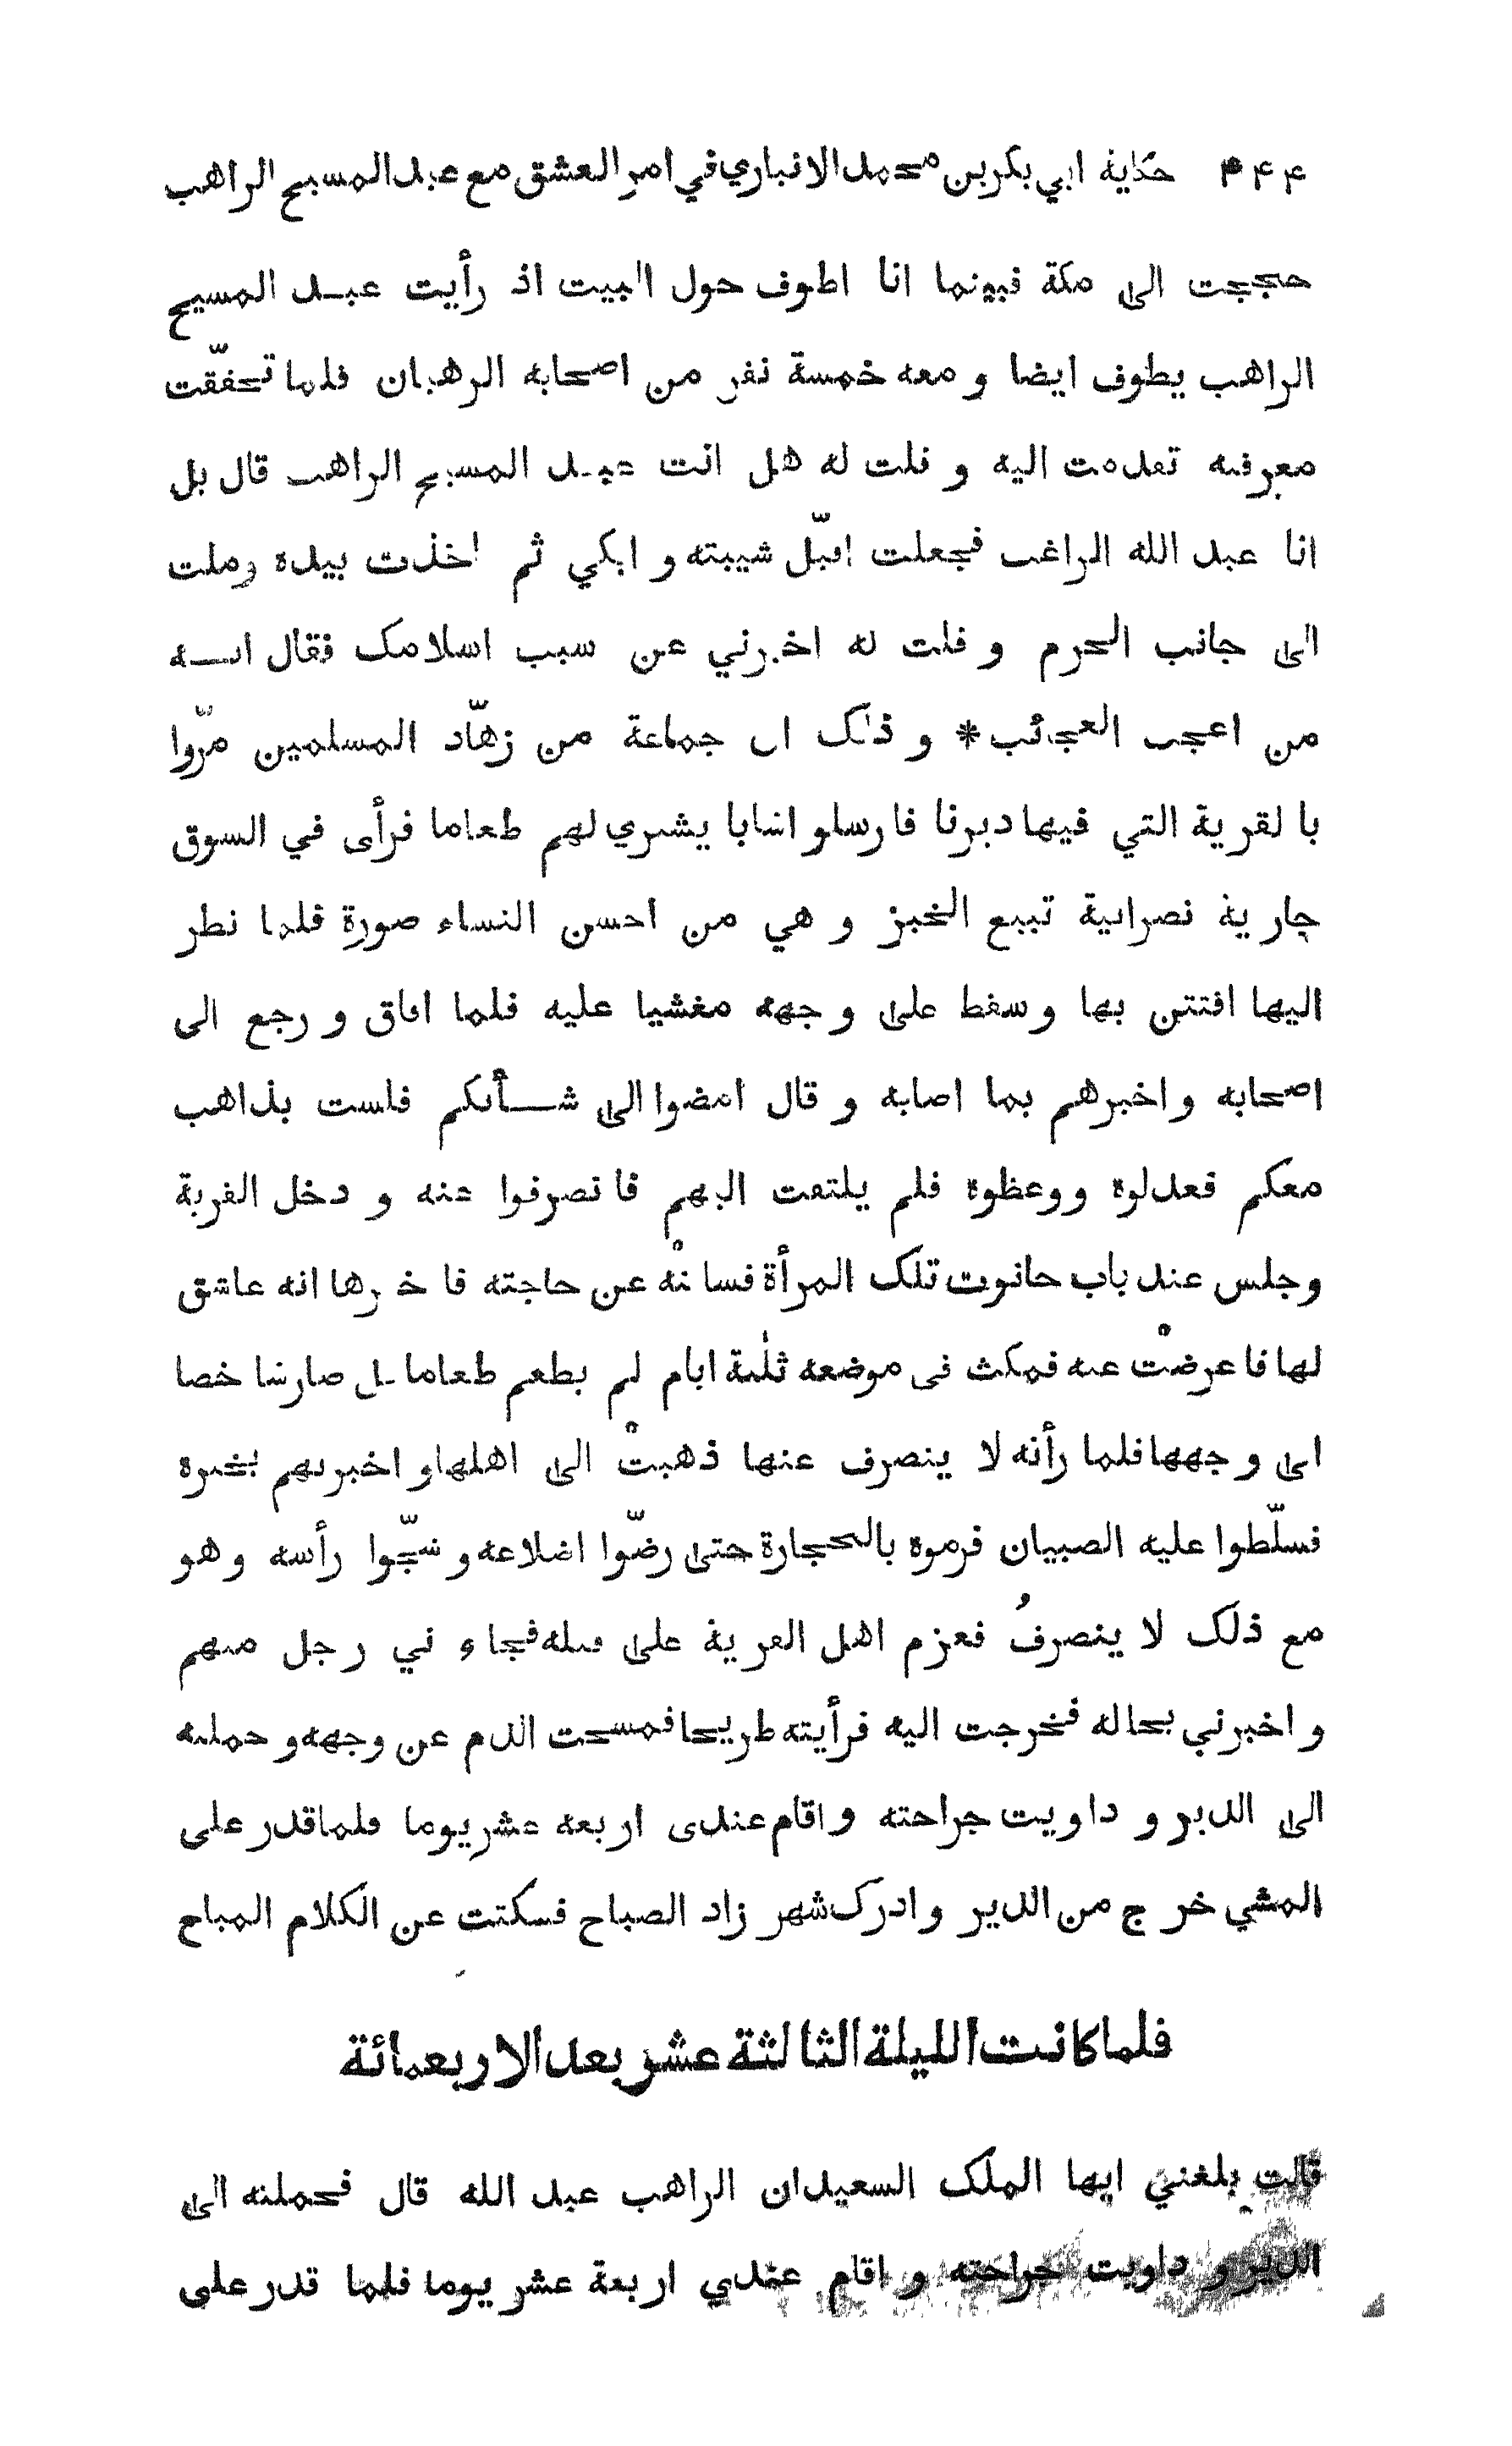 ۴۴۴ حكاية ابي بكر بن محمد الانباري في امر العشق مع عبد المسيح الراهب
حججت الى مكة فبينما انا اطوف حول البيت اذ رأيت عبد المسيح
الراهب يطوف ايضا و معه خمسة نفر من اصحابه الرهبان فلما تحقّقت
معرفته تقدمت اليه و قلت له هل انت عبد المسيح الراهب قال بل
انا عبد الله الراغب فجعلت اقبّل شيبته و ابكي ثم اخذت بيده وملت
الى جانب الحرم و قلت له اخبرني عن سبب اسلامك فقال انه
من اعجب العجائب* و ذلك ان جماعة من زهّاد المسلمين مرّوا
بالقرية التي فيها ديرنا فارسلو اشابا يشترى لهم طعاما فرأى في السوق
جارية نصرانية تبيع الخبز و هي من احسن النساء صورة فلما نظر
اليها افتتن بها و سقط على وجهه مغشيا عليه فلما افاق و رجع الى
اصحابه و اخبرهم بما اصابه و قال امضوا الى شأنكم فلست بذاهب
معكم فعدلوه ووعظوه فلم يلتفت اليهم فانصرفوا عنه و دخل القرية
وجلس عند باب حانوت تلك المرأة فسالتْه عن حاجته فاخبرها انه عاشق
لها فاعرضتْ عنه فمكث فى موضعه ثلٰثة ايام لم يطعم طعاما بل صار شاخصا
الى وجهها فلما رأته لا ينصرف عنها ذهبتْ الى اهلها و اخبرتهم بخبره
فسلّطوا عليه الصبيان فرموه بالحجارة حتى رضّوا اضلاعه و شجّوا رأسه و هو
مع ذلك لا ينصرفُ فعزم اهل القرية على قتله فجاءني رجل منهم
و اخبرني بحاله فخرجت اليه فرأيته طريحا فمسحت الدم عن وجهه و حملته
الى الدير و داويت جراحته و اقام عندى اربعه عشر يوما فلما قدر على
المشي خرج من الدير و ادرك شهر زاد الصباح فسكتت عن الكلام المباح
فلما كانت الليلة الثالثة عشر بعد الاربعمائة
قالت بلغني ايها الملك السعيد ان الراهب عبد الله قال فحملته الى
الدير و داويت جراحته و اقام عندي اربعة عشر يوما فلما قدر على